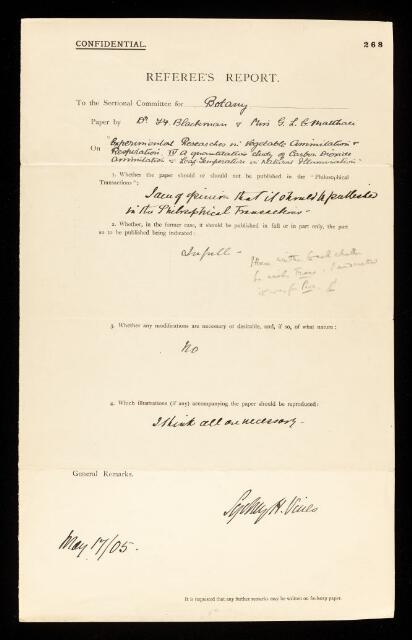 CONFIDENTIAL.
268
REFEREE'S REPORT.
To the Sectional Committee for Botany
Paper by Dr. F.F. Blackman & Miss G. L. C. Matthaei
On "Experimental Researches in Vegetable Assimilation &
Respiration. IV A quantitative Study of Carbon Dioxide
Assimilation & Leaf Temperature in Natural Illumination"
1. Whether the paper should or should not be published in the "Philosophical
Transactions":
I am of opinion that it should be published
in the Philosophical Transactions.
2. Whether, in the former case, it should be published in full or in part only, the part
so to be published being indicated:
In full -
3. Whether any modifications are necessary or desirable, and, if so, of what nature:
No
4. Which illustrations (if any) accompanying the paper should be reproduced:
I think all are necessary.
General Remarks.
Sydney H. Vines
May 17/05.
It is requested that any further remarks may be written on foolscap paper.